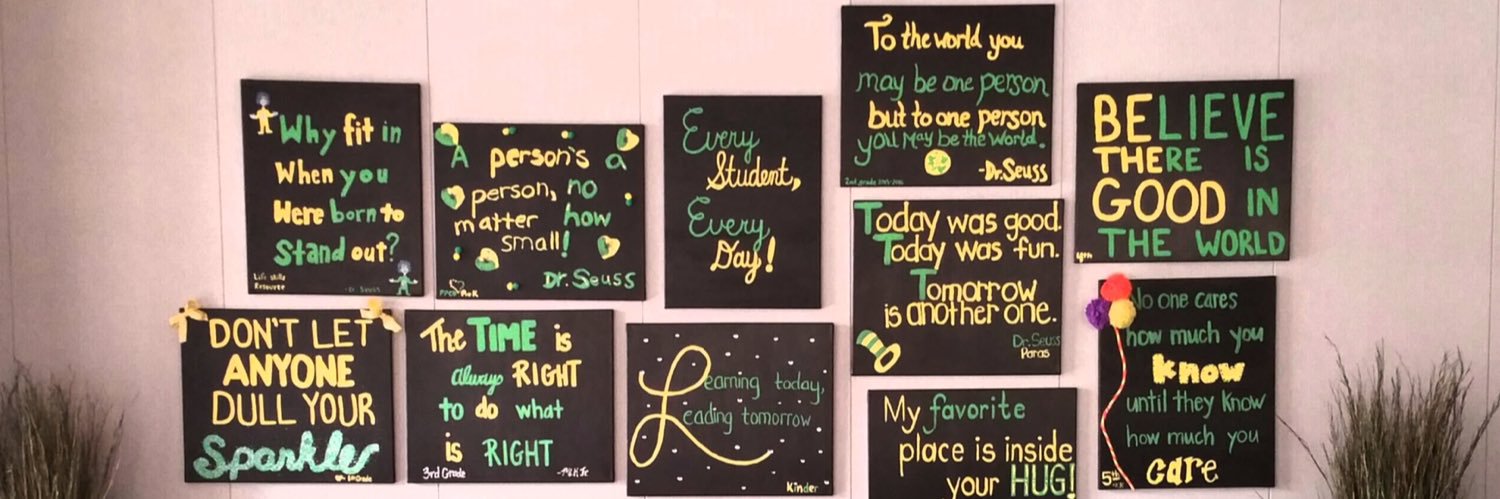 Why fit in
When you
Were born to
Stand out?
Life skills
Resource
-Dr. Seuss
A person's a
person, no
matter how
small!
Dr. Seuss
Every
Student,
Every
Day!
To the world you
may be one person
but to one person
you May be the World.
-Dr. Seuss
2nd grade 2015-2016
BELIEVE
THERE IS
GOOD IN
THE WORLD
Today was good.
Today was fun.
Tomorrow
is another one.
Dr. Seuss
Paras
No one cares
how much you
know
until they know
how much you
care
5th
DON'T LET
ANYONE
DULL YOUR
Sparkle
The TIME is
Always RIGHT
to do what
is RIGHT
3rd Grade
-MLK Jr
Learning today,
Leading tomorrow
Kinder
My favorite
place is inside
your HUG!